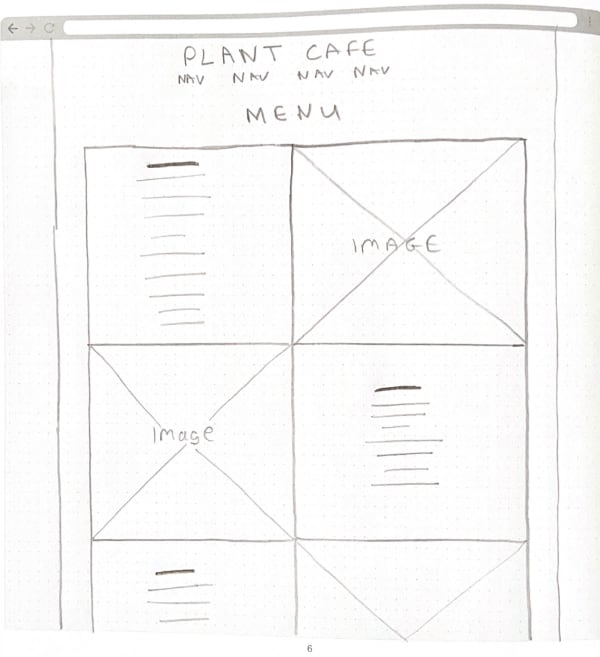 PLANT CAFE
NAV NAV NAV NAV
MENU
IMAGE
Image
6